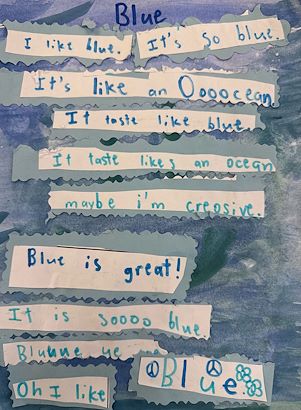 Blue
I like blue. It's so blue.
It's like an Ooooocean
It taste like blue.
It taste likes an ocean
maybe i'm creosive.
Blue is great!
It is soooo blue.
Oh I like
Blue